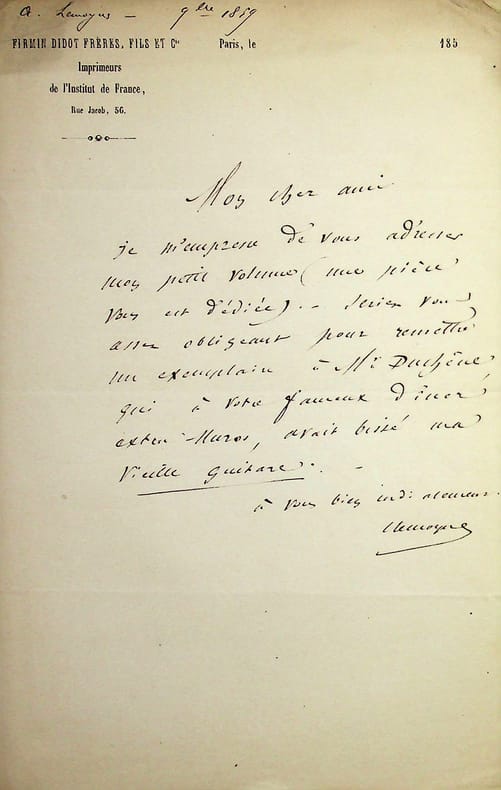 A. Lemoyne — 9bre 1859
FIRMIN DIDOT FRÈRES, FILS ET Cie Paris, le 185
Imprimeurs
de l'Institut de France,
Rue Jacob, 56.
Mon cher ami
je m'empresse de vous adresser
mon petit volume (une pièce
vous est dédiée). - Seriez vous
assez obligeant pour remettre
un exemplaire à Mr. Duchêne,
qui à votre fameux dîner
extra-Muros, avait bissé ma
vieille guitare. -
à vous bien cordialement
Lemoyne